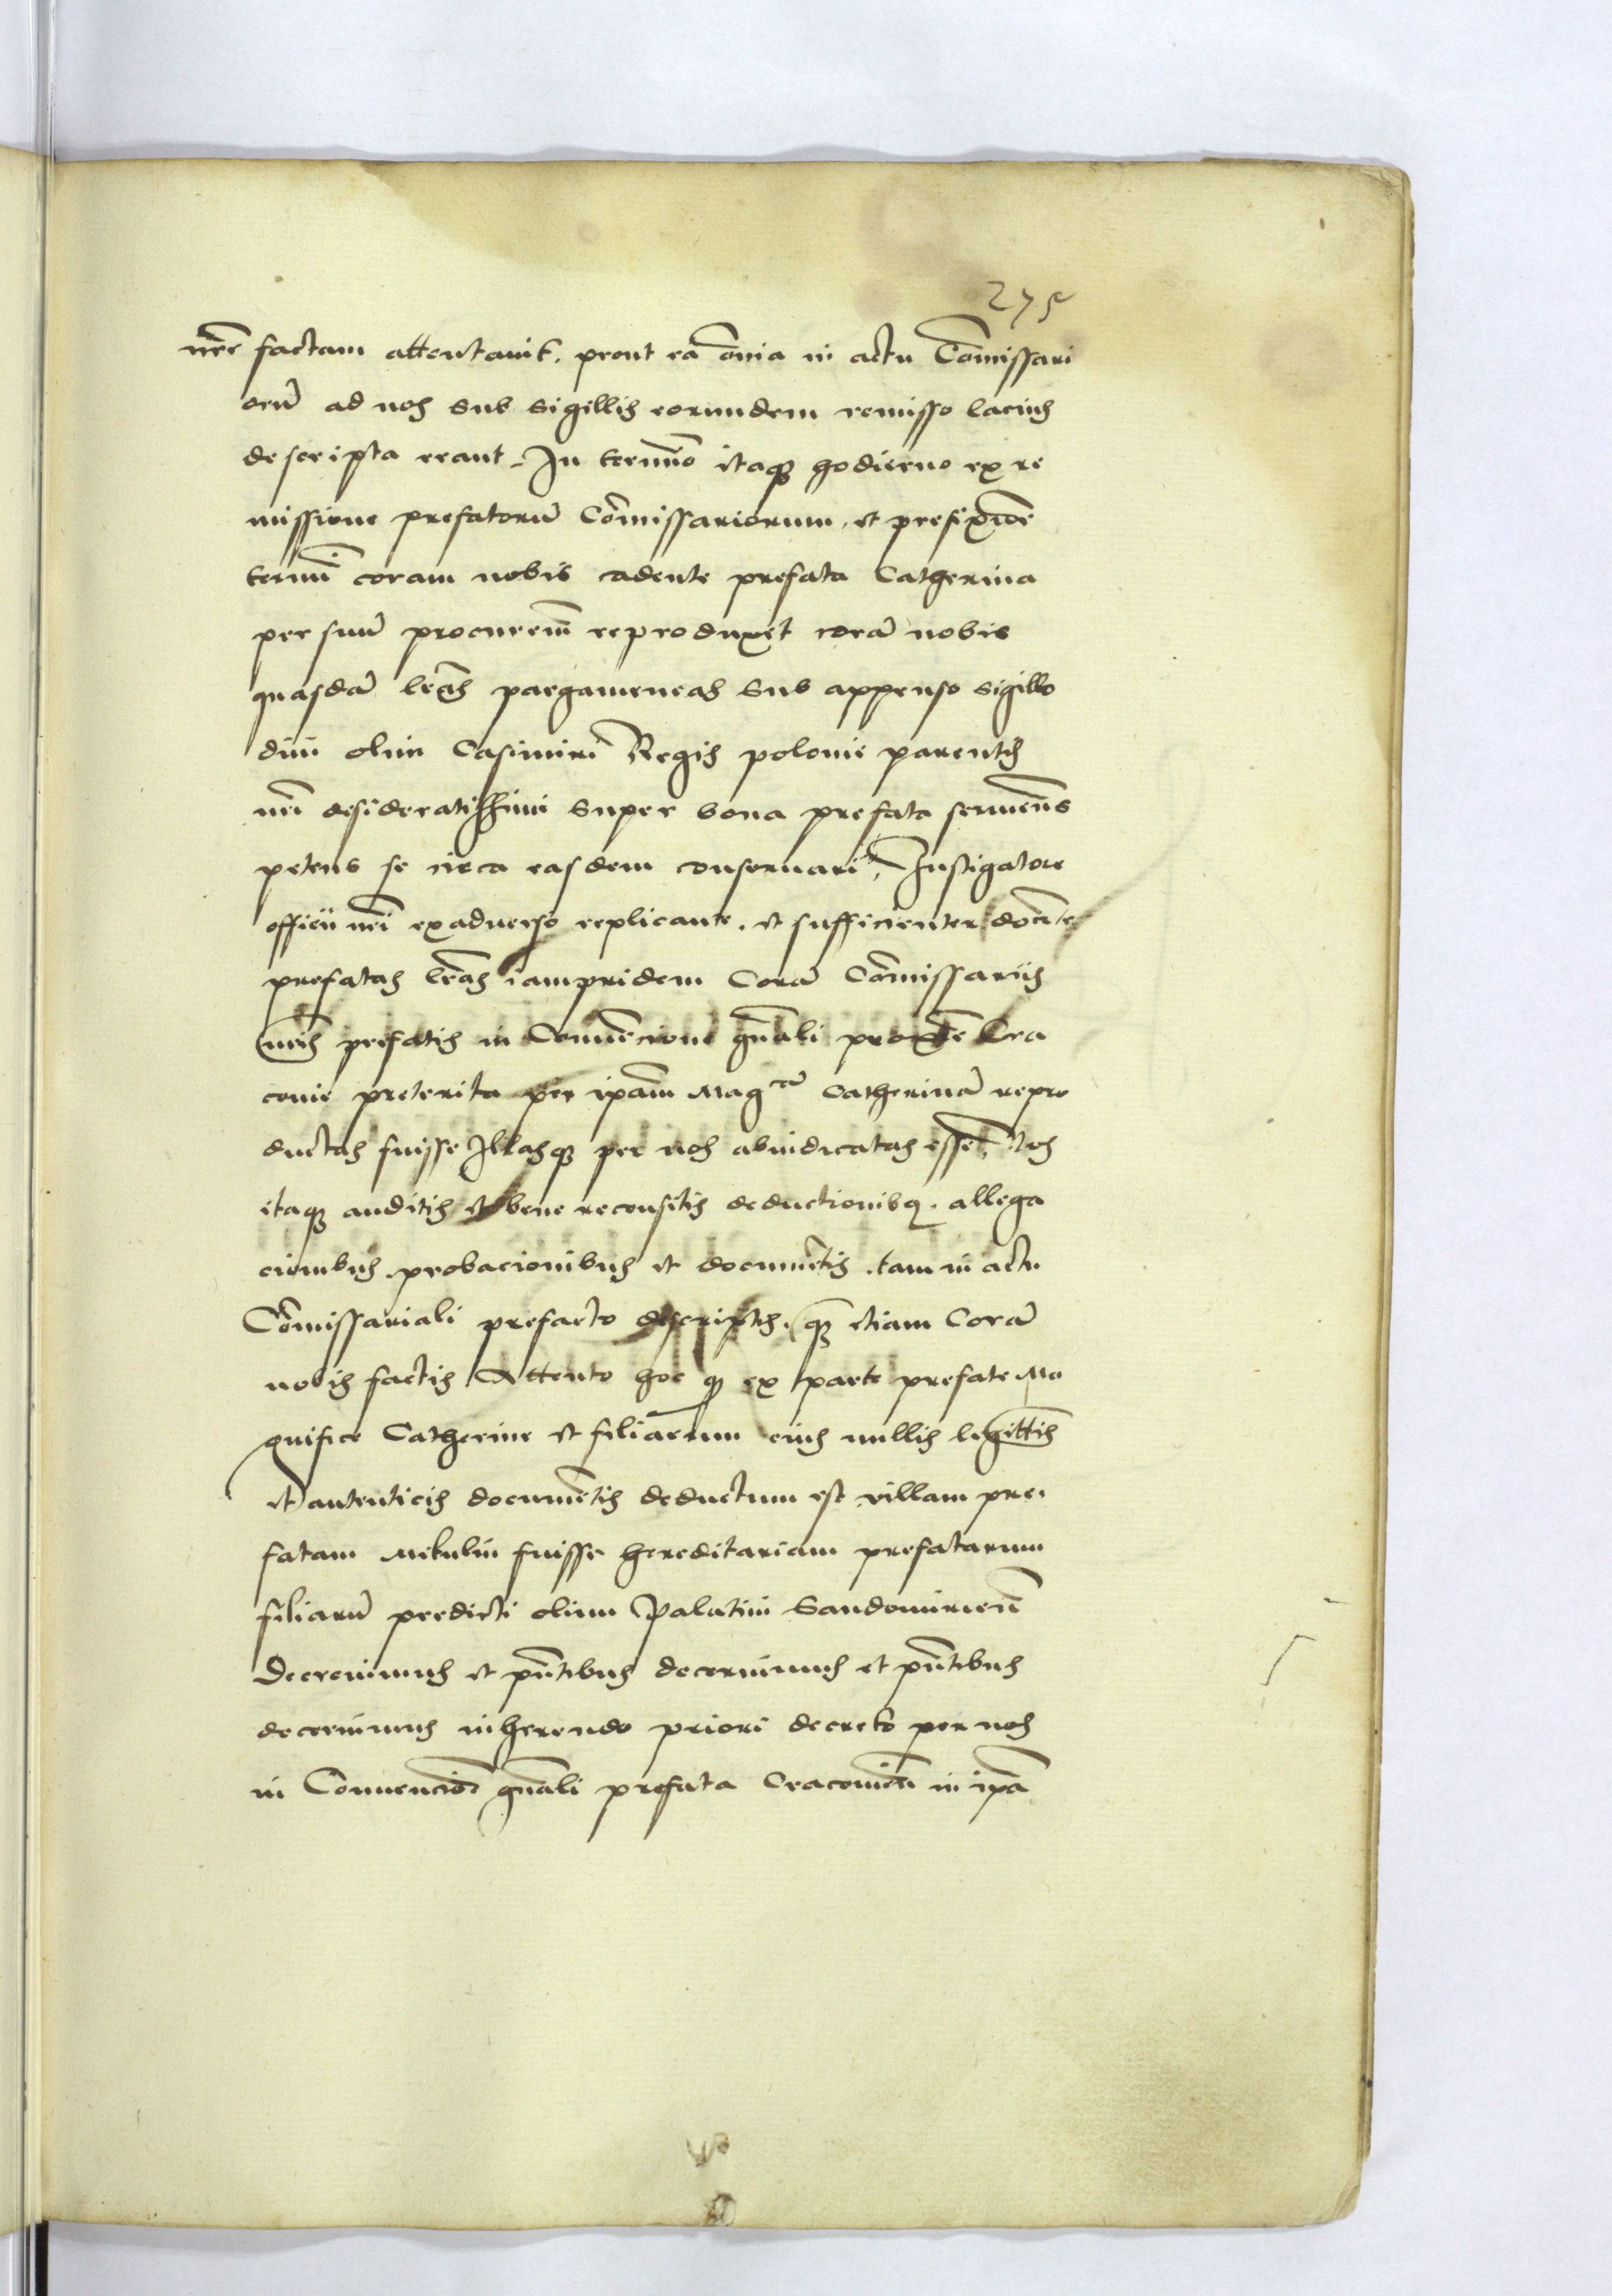 275
nr̃e factam attentauit. prout ea õnia in actu Com̃issari
orũ ad nos sub sigillis eorundem remisso lacius
descripta erant. In termĩno itaq hodierno ex re
missione prefatorũ Com̃issariorum, et prefixiõe
termĩ coram nobis cadente prefata Catherina
per suũ procur̃em reproduxit corã nobis
quasdã lr̃as pargameneas sub appenso sigillo
diui olim Casimiri Regis polonie parentis
nr̃i desideratissimi super bona prefata seruieñs
petens se circa easdem conseruari, Instigatore
officii nr̃i exaduerso replicante. et sufficienter docẽte
prefatas lr̃as iampridem Corã Com̃issariis
nr̃is prefatis in Conuẽcione gñali proxĩe Cra
couie preterita per ip̃am Mag^cã Catherinã repro
ductas fuisse Illasq per nos abiudicatas esse, Nos
itaq auditis et bene recensitis deductionibq. allega
cionibus. probacionibus et documẽtis. tam in actu
Com̃issariali prefacto descriptis. q etiam Corã
nobis factis Attento hoc q ex parte prefate Ma
gnifice Catherine et filiarum eius nullis legittĩs
et autenticis documẽtis deductum est villam pre
fatam Mikulin fuisse hereditariam prefatarum
filiarũ predicti olim Palatini Sandomirieñ
Decreuimus et pñtibus decernimus et pñtibus
decernimus inherendo priori decreto per nos
in Conuencioẽ gñali prefata Cracouieñ in ip̃a